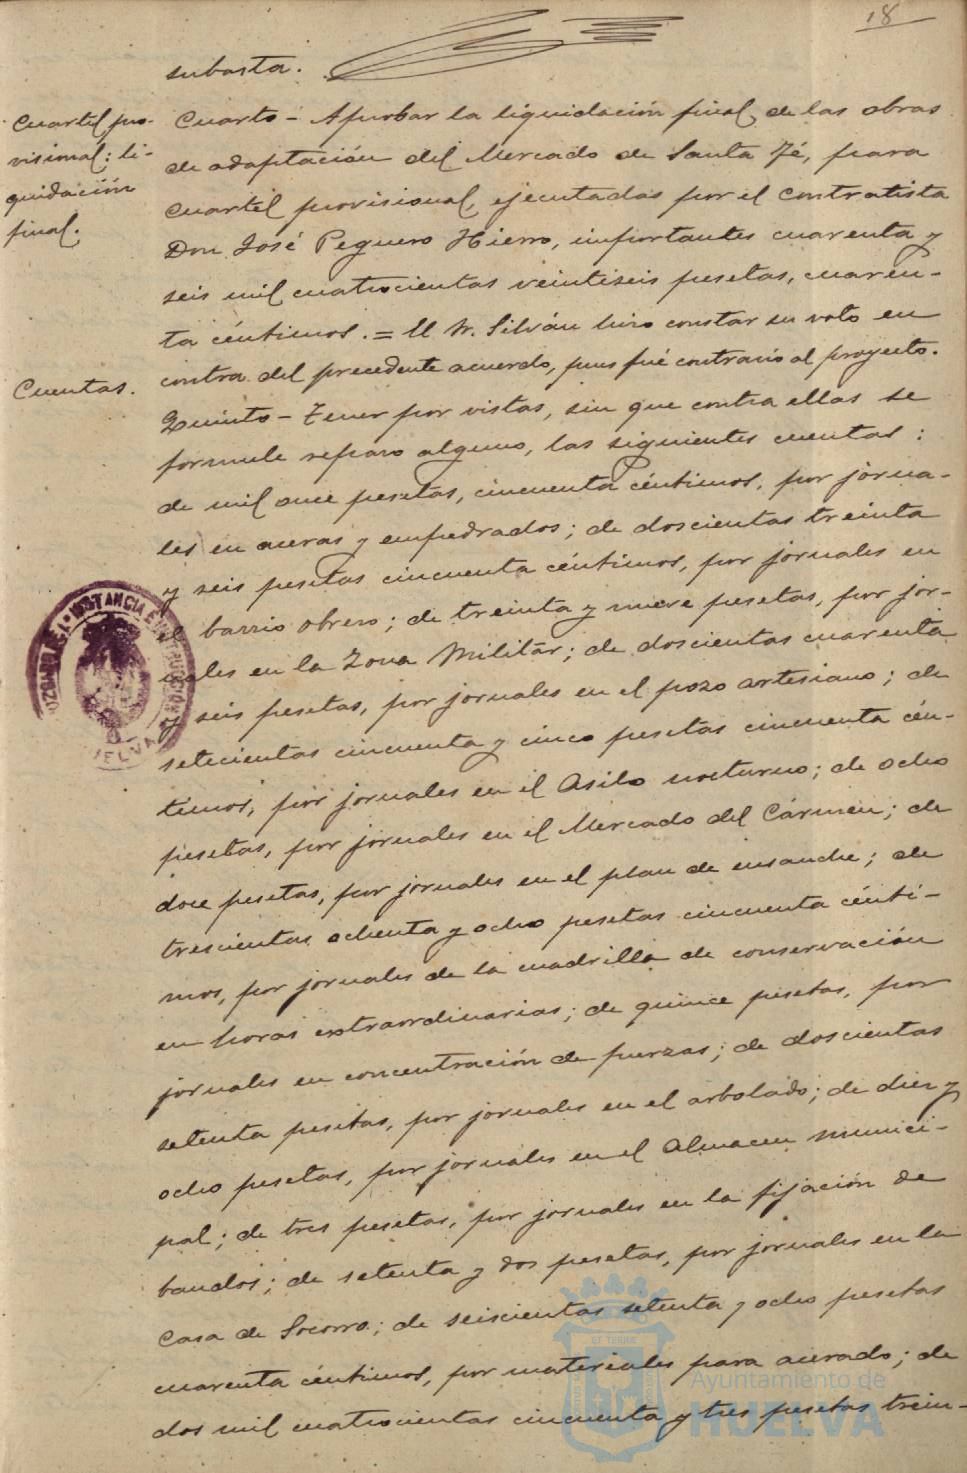 18
subasta.
Cuartel pro-
visional: li-
quidación
final.
Cuarto - Aprobar la liquidación final de las obras
de adaptación del Mercado de Santa Fé, para
cuartel provisional, ejecutadas por el contratista
Don José Peguero Hierro, importantes cuarenta y
seis mil cuatrocientas veintiseis pesetas, cuaren-
ta céntimos. = El Sr. Silván hizo constar su voto en
contra del precedente acuerdo, pues fué contrario al proyecto.
Cuentas.
Quinto - Tener por vistas, sin que contra ellas se
formule reparo alguno, las siguientes cuentas:
de mil once pesetas, cincuenta céntimos, por jorna-
les en aceras y empedrados; de doscientas treinta
y seis pesetas cincuenta céntimos, por jornales en
el barrio obrero; de treinta y nueve pesetas, por jor-
nales en la Zona Militar; de doscientas cuarenta
y seis pesetas, por jornales en el pozo artesiano; de
setecientas cincuenta y cinco pesetas cincuenta cén-
timos, por jornales en el Asilo nocturno; de ocho
pesetas, por jornales en el Mercado del Cármen; de
doce pesetas, por jornales en el plan de ensanche; de
trescientas ochenta y ocho pesetas cincuenta cénti-
mos, por jornales de la cuadrilla de conservación
en horas extraordinarias; de quince pesetas, por
jornales en concentración de fuerzas; de doscientas
setenta pesetas, por jornales en el arbolado; de diez y
ocho pesetas, por jornales en el Almacen munici-
pal; de tres pesetas, por jornales en la fijación de
bandos; de setenta y dos pesetas, por jornales en la
Casa de Socorro; de seiscientas setenta y ocho pesetas
cuarenta céntimos, por materiales para acerado; de
dos mil cuatrocientas cincuenta y tres pesetas trein-
JUZGADO DE 1ª INSTANCIA E INSTRUCCIÓN
HUELVA
Ayuntamiento de
HUELVA